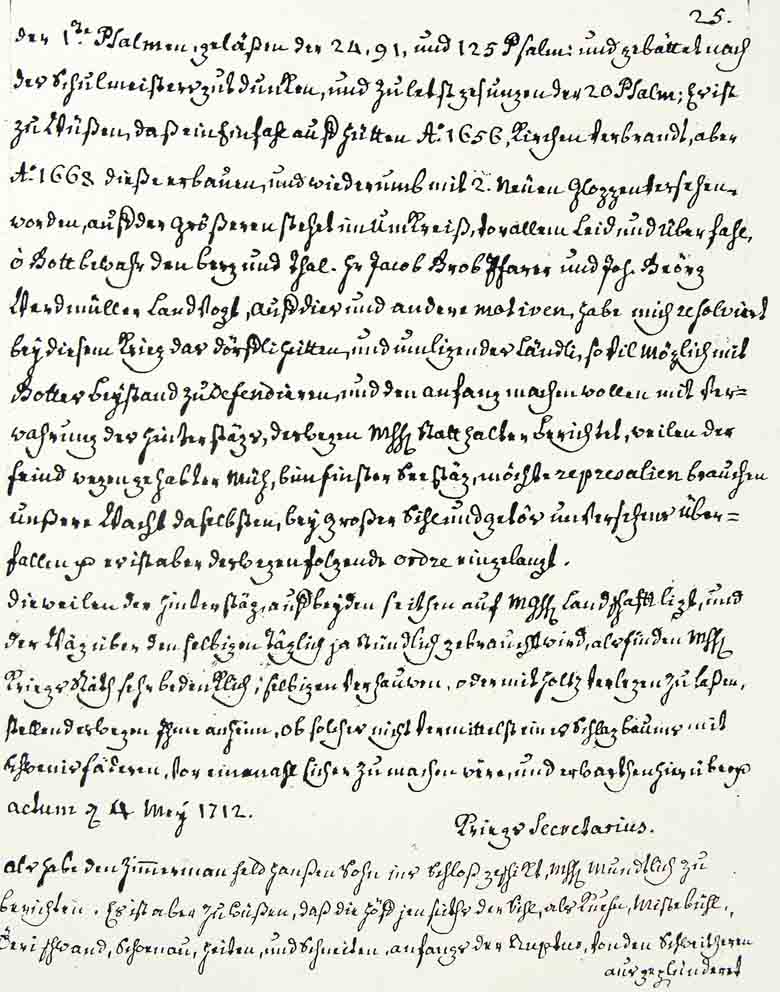 25.
der 1.te Psalmen, geläßen der 24, 91, und 125 Psalm: und gebättet nach
des Schulmeisters gutdunken, und zu letst gesungen der 20 Psalm; Es ist
zu wüßen, daß ein Einfahl auff Hütten Aº. 1656, Kirchen verbrandt, aber
Aº. 1668 dieße erbauen, und wiederumb mit 2. Neüen Gloggen versehen
worden, auff der größeren stehet im Umkreiß, vor allem Leid und Überfahl,
ô Gott bewahr den berg und Thal. Hr Jacob Grob Pfarer und Joh. Geörg
Werdmüller Landvogt, auff dies und andere motiven, habe mich resolviert
bey diesem Krieg das dörffli Hütten, und umligendes Ländli, so vil möglich mit
Gottes beystand zu defendieren, und den anfang machen wollen mit Ver=
wahrung des Hinter stägs, deswegen MHH Statthalter berichtet, weilen der
feind wegen gehabter Müh, bim finster See stäg, möchte represalien brauchen
unßere Wacht daselbsten, bey großer Sihl und getös unversehens über=
fallen p es ist aber deswegen folgende ordre eingelangt.
Dieweilen der Hinter stäg, auff beyden seithen auf MGHH Landschafft ligt, und
der Wäg über den selbigen täglich ja stündlich gebraucht wird, als finden MHH
Kriegs Räth sehr bedenklich, selbigen verhauwen, oder mit Holtz verlegen zu laßen,
stellen deswegen Ihme anheim, ob solcher nicht vermittelst eines Schlagbaums mit
Schweinsfäderen, vor ein mahl sicher zu machen wäre, und erwarthen hierüber p
actum 4 Mey 1712.
Kriegs Secretarius.
als habe den Zimmerman feld Hanßen Sohn ins Schloß geschikt, MHH Mundtlich zu
berichten. Es ist aber zu wüßen, daß die Höff jenseiths der Sihl, als Mistebühl,
Schönau, und Schneiten, anfangs der Ruptur, von den Schweitzeren
ausgeplünderet